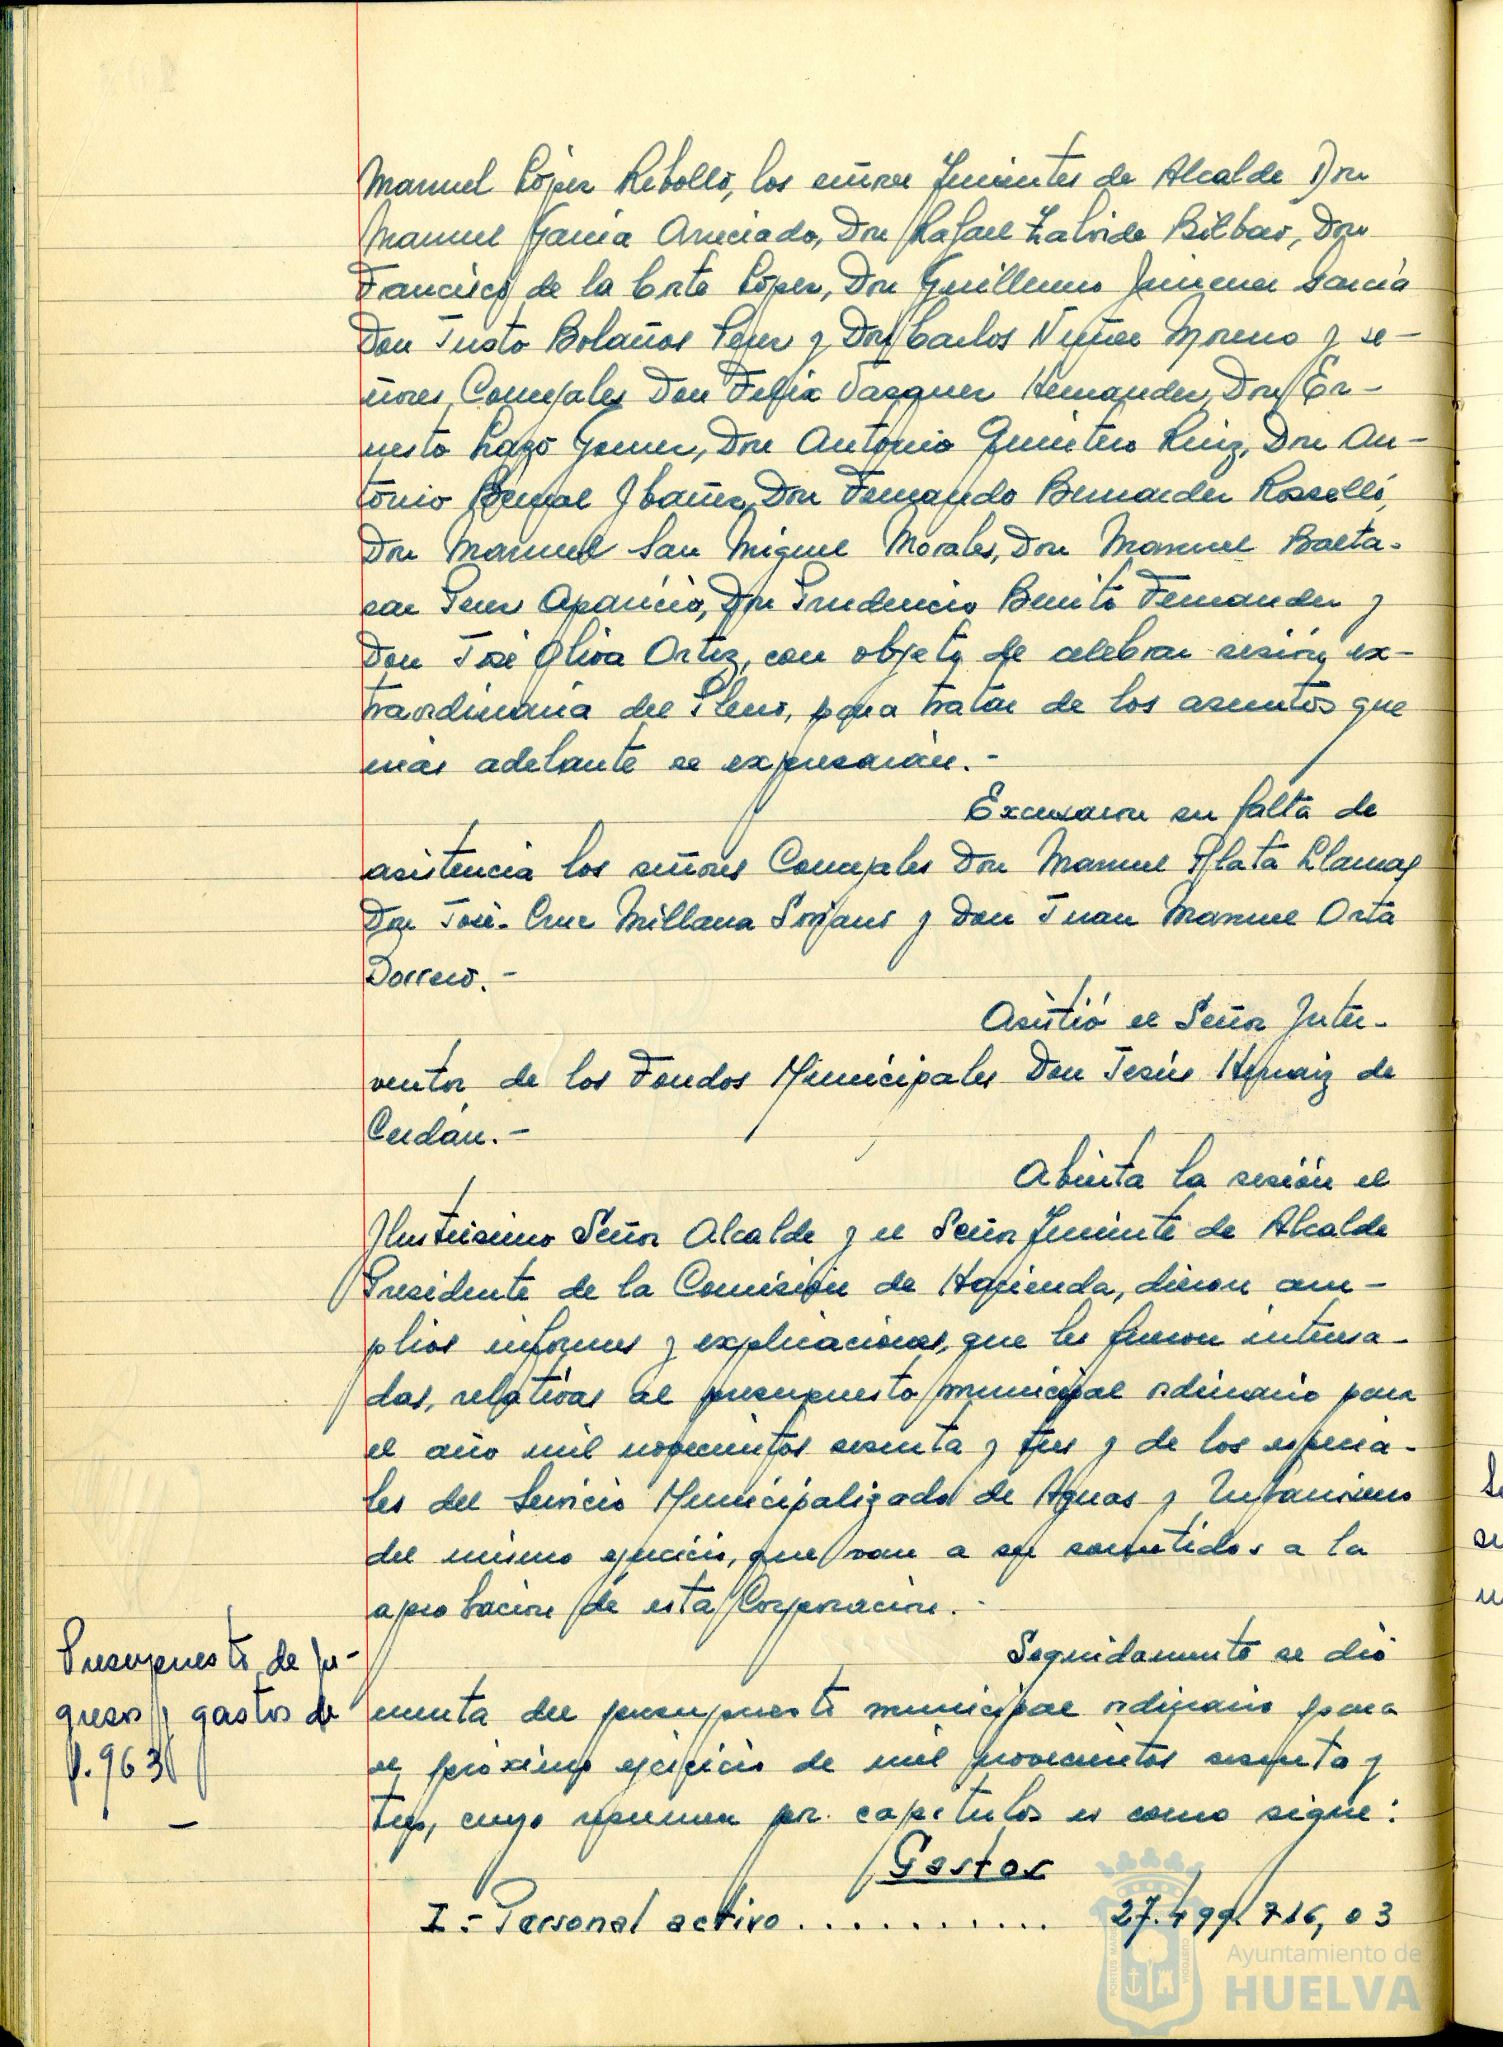 Manuel López Rebollo, los señores Tenientes de Alcalde Don
Manuel García Anuciado, Don Rafael Zalvide Bilbao, Don
Francisco de la Corte López, Don Guillermo Jimenez García
Don Justo Bolaños Perez y Don Carlos Nuñez Moreno y se-
ñores Concejales Don Felix Vazquez Hernandez, Don Er-
nesto Lazo Gomez, Don Antonio Quintero Ruiz, Don An-
tonio Bernal Ybañez, Don Fernando Bernardez Rosselló,
Don Manuel San Miguel Morales, Don Manuel Balta-
sar Perez Aparicio, Don Prudencio Benito Fernandez y
Don José Oliva Ortiz, con objeto de celebrar sesión ex-
traordinaria del Pleno, para tratar de los asuntos que
más adelante se expresarán.-
Excusaron su falta de
asistencia los señores Concejales Don Manuel Plata Llamas
Don José-Cruz Millana Soriano y Don Juan Manuel Orta
Borrero.-
Asistió el Señor Inter-
ventor de los Fondos Municipales Don Jesús Hernaiz de
Cerdán.-
Abierta la sesión el
Ilustrisimo Señor Alcalde y el Señor Teniente de Alcalde
Presidente de la Comisión de Hacienda, dieron am-
plios informes y explicaciones, que les fueron interesa-
das, relativas al presupuesto municipal ordinario para
el año mil novecientos sesenta y tres y de los especia-
les del Servicio Municipalizado de Aguas y Urbanismo
del mismo ejercicio, que van a ser sometidos a la
aprobacion de esta Corporacion.-
Presupuesto de In-
gresos y gastos de
1.963
Seguidamente se dió
cuenta del presupuesto municipal ordinario para
el próximo ejercicio de mil novecientos sesenta y
tres, cuyo resumen por capitulos es como sigue:
Gastos
I.- Personal activo........... 27.499.716,03
Ayuntamiento de
HUELVA